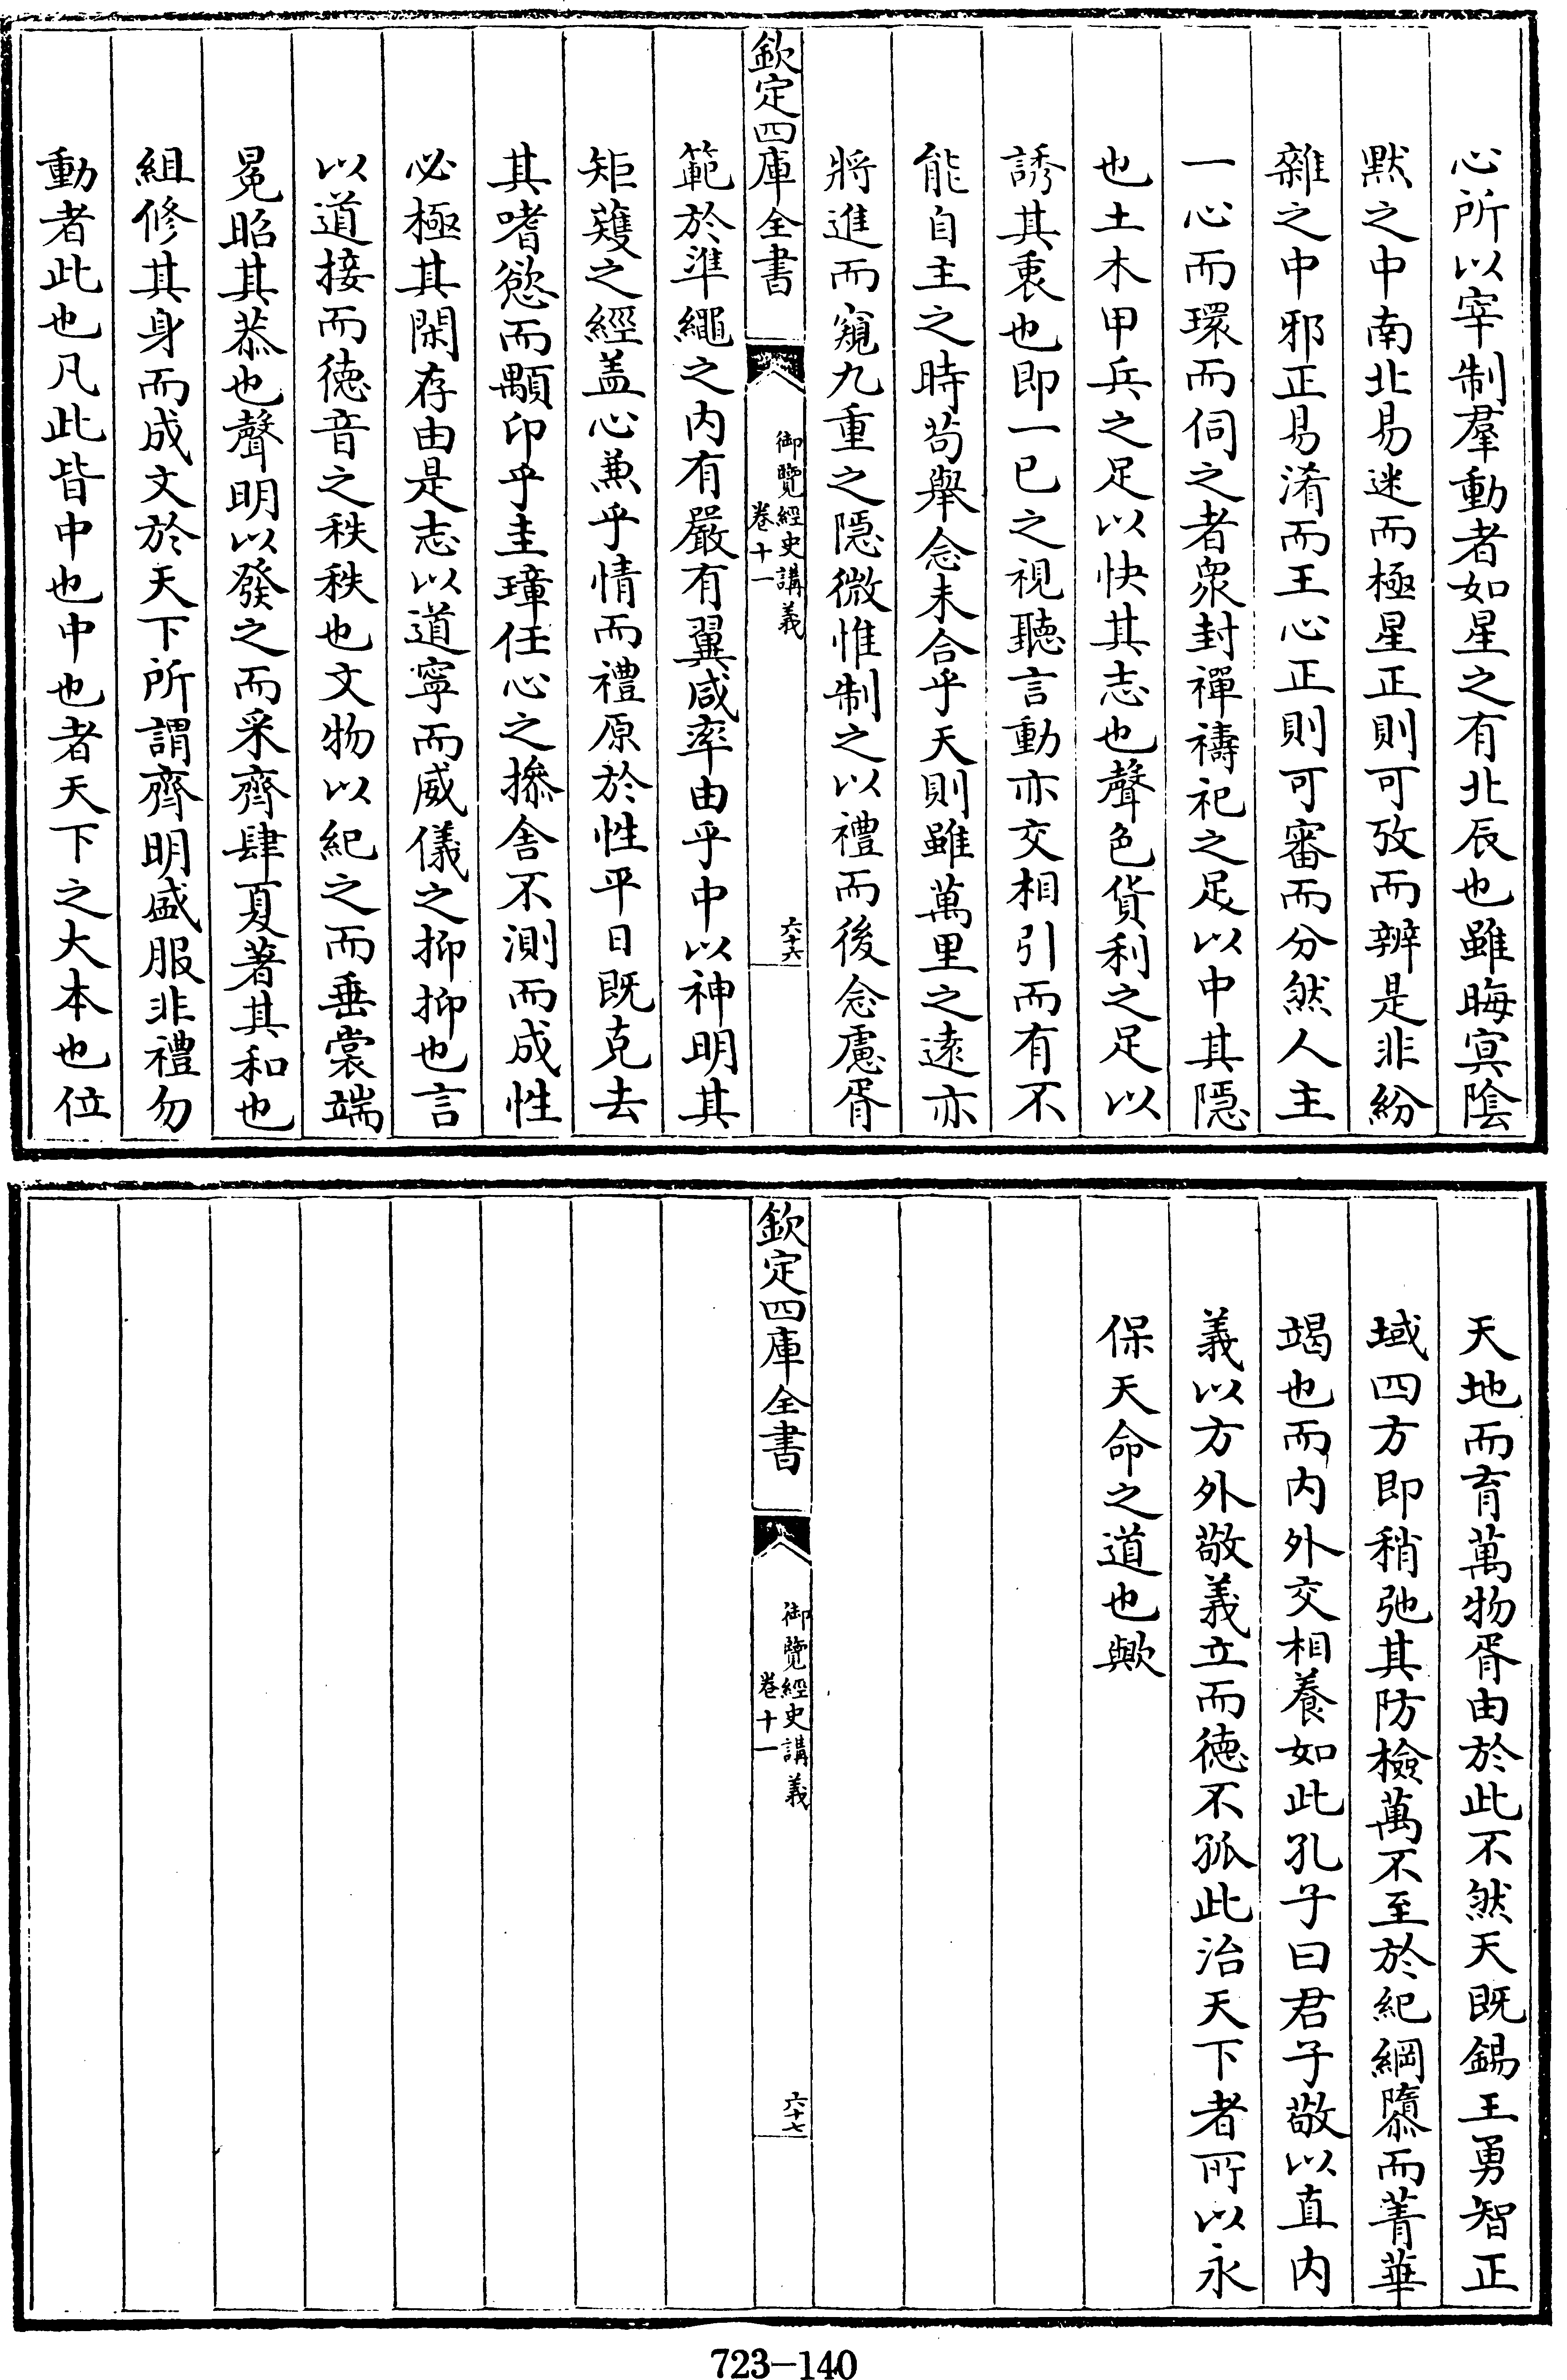 心所以宰制羣動者如星之有北辰也雖晦冥陰
默之中南北易迷而極星正則可攷而辨是非紛
雜之中邪正易淆而王心正則可審而分然人主
一心而環而伺之者衆封禪禱祀之足以中其隱
也土木甲兵之足以快其志也聲色貨利之足以
誘其衷也即一已之視聽言動亦交相引而有不
能自主之時苟舉念未合乎天則雖萬里之遠亦
將進而窺九重之隱微惟制之以禮而後念慮胥
欽定四庫全書
御覽經史講義
卷十一
六十六
範於準繩之内有嚴有翼咸率由乎中以神明其
矩矱之經盖心兼乎情而禮原於性平日既克去
其嗜慾而顒印乎圭璋任心之操舍不測而成性
必極其閑存由是志以道寧而威儀之抑抑也言
以道接而徳音之秩秩也文物以紀之而垂裳端
冕昭其恭也聲明以發之而采齊肆夏著其和也
組修其身而成文於天下所謂齊明盛服非禮勿
動者此也凡此皆中也中也者天下之大本也位
天地而育萬物胥由於此不然天既錫王勇智正
域四方即稍弛其防檢萬不至於紀綱隳而菁華
竭也而内外交相養如此孔子曰君子敬以直内
義以方外敬義立而德不孤此治天下者所以永
保天命之道也歟
欽定四庫全書
御覽經史講義
卷十一
六十七
723-140